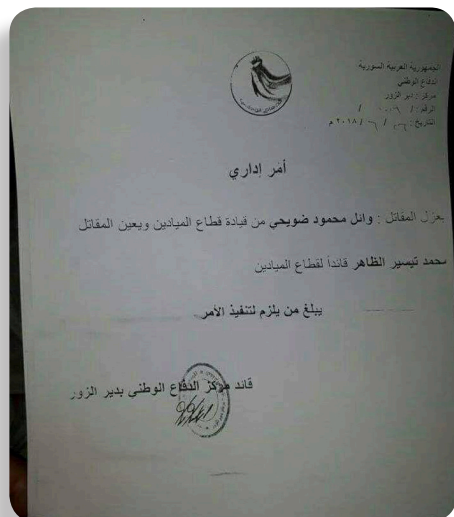 الجمهورية العربية السورية
الدفاع الوطني
مركز : دير الزور
الرقم : /
التاريخ : / / ٢٠١٨ م
أمر إداري
يعزل المقاتل : وائل محمود ضويحي من قيادة قطاع الميادين ويعين المقاتل
محمد تيسير الظاهر قائداً لقطاع الميادين
يبلغ من يلزم لتنفيذ الأمر
قائد مركز الدفاع الوطني بدير الزور